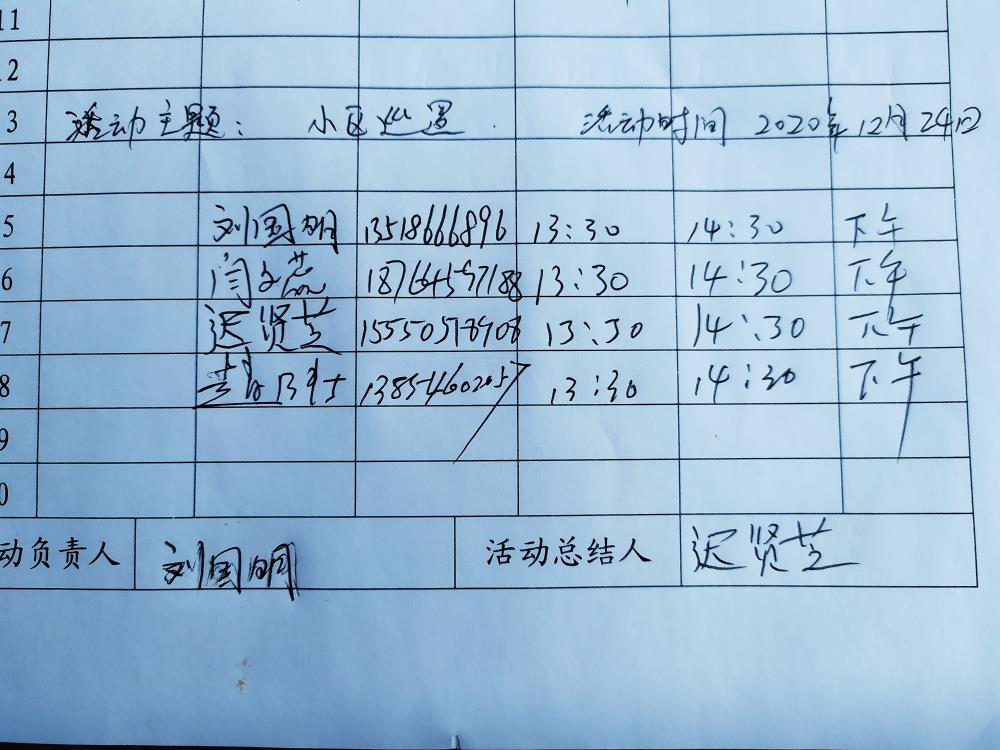 11
12
3 活动主题: 小区巡逻. 活动时间 2020年12月24日
4
5 刘国明 13518666896 13:30 14:30 下午
6 闫文燕 13:30 14:30 下午
7 迟贤芝 13:30 14:30 下午
8 13:30 14:30 下午
9
0
动负责人 刘国明 活动总结人 迟贤芝